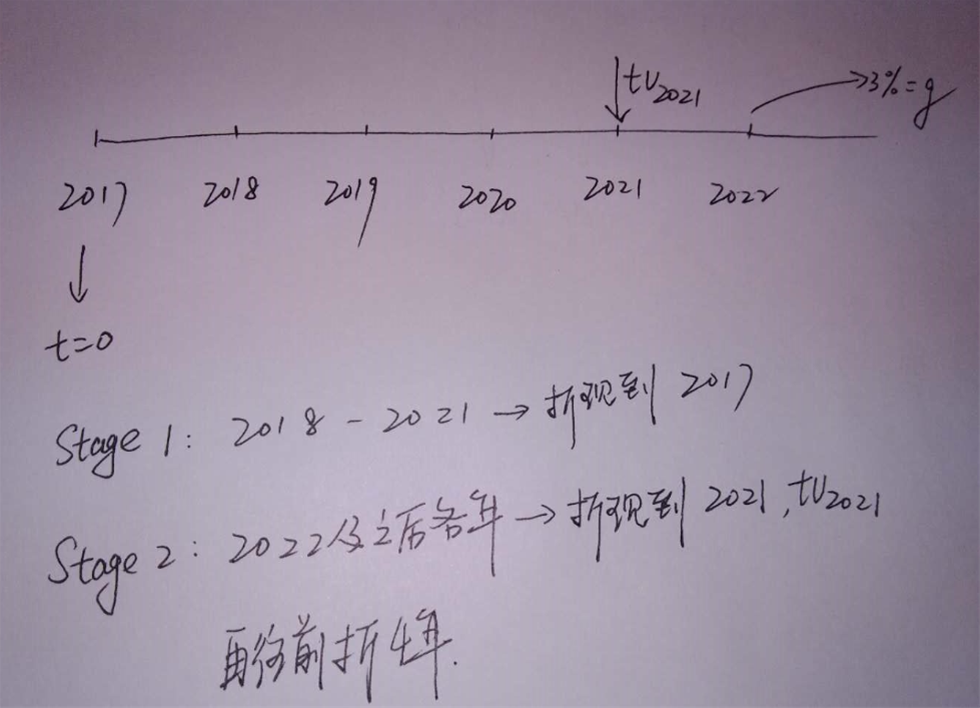 tV2021
→3%=g
2017 2018 2019 2020 2021 2022
t=0
Stage 1: 2018-2021→折现到 2017
Stage 2: 2022及之后各年→折现到 2021, tV2021
再往前折4年.